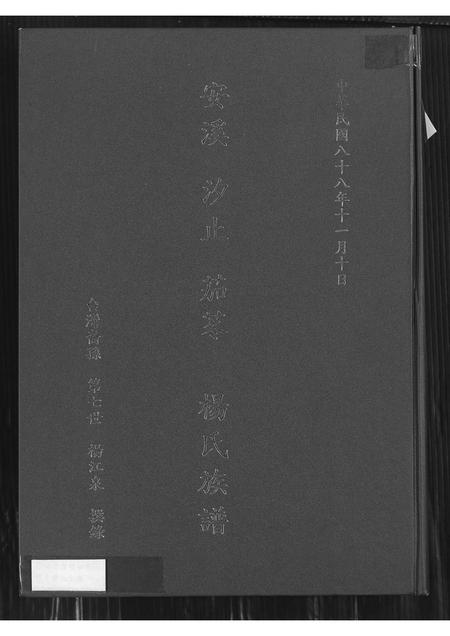 中華民國八十八年十一月十日
安溪 汐止 茄苳 楊氏族譜
台灣裔孫 第七世 楊江泉 撰錄